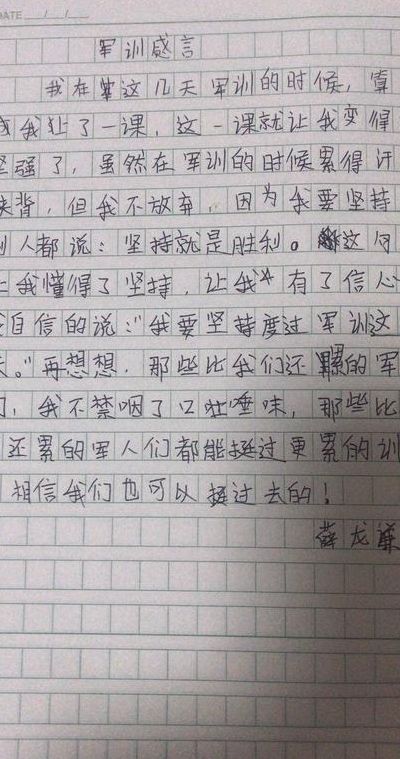 DATE
军训感言
我在这几天军训的时候，真
我上了一课，这一课就让我变得
坚强了，虽然在军训的时候累得汗
背，但我不放弃，因为我要坚持
别人都说：坚持就是胜利。这句
让我懂得了坚持，让我有了信心
自信的说："我要坚持度过军训这
天。"再想想，那些比我们还累的军
们，我不禁咽了口唾味，那些比
还累的军人们都能挺过更累的训
相信我们也可以挺过去的！
薛龙